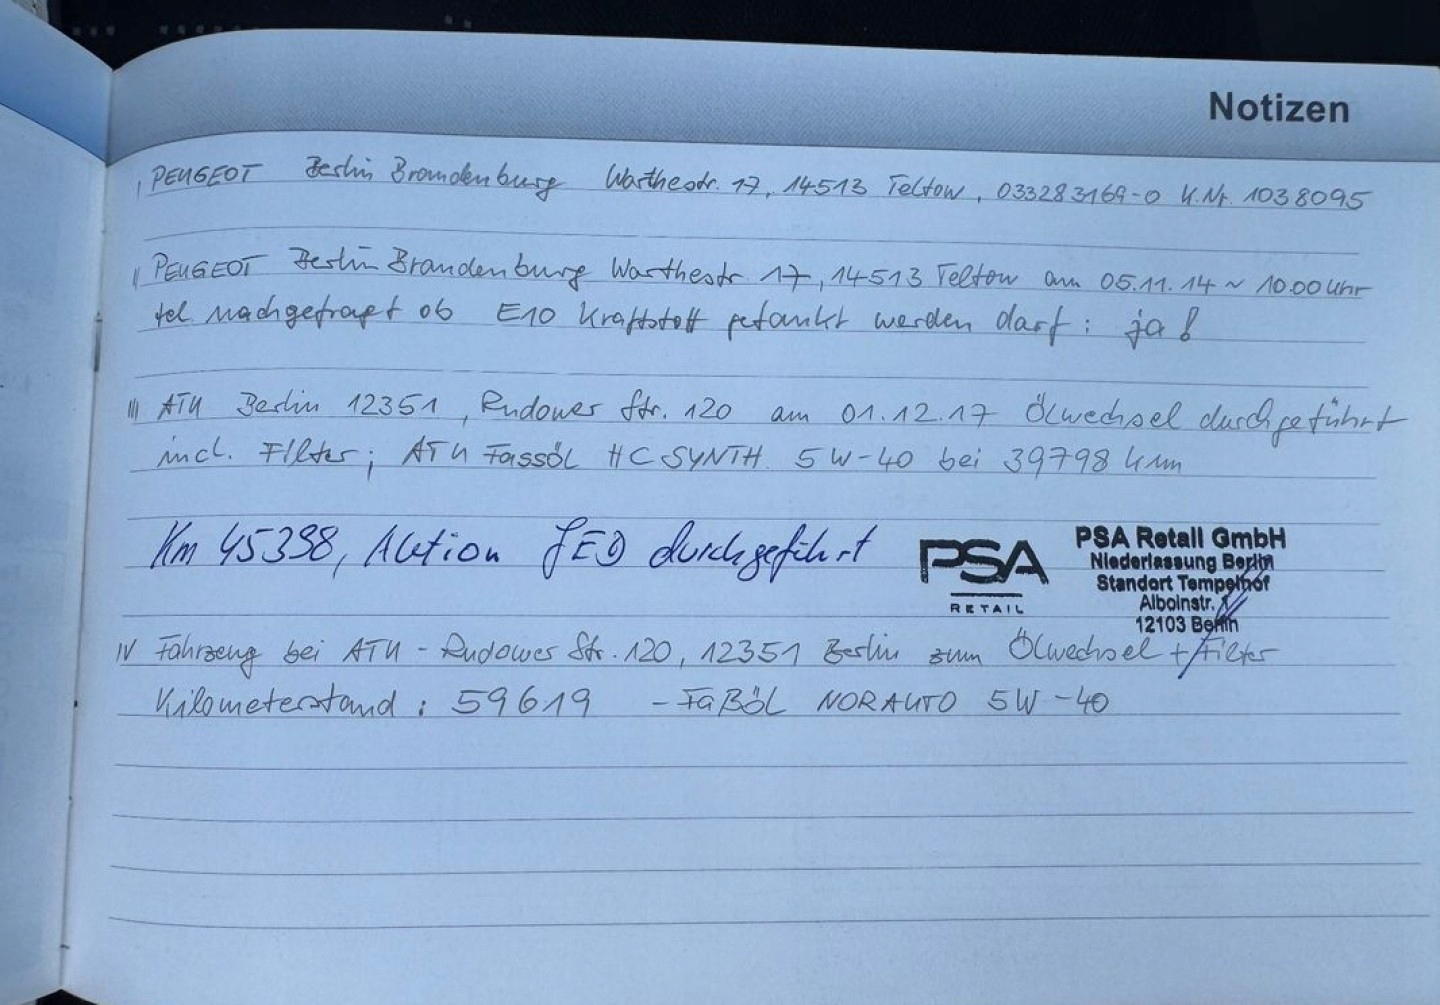 Notizen
I PEUGEOT Berlin Brandenburg Warthestr. 17, 14513 Teltow, 033283169-0 K.Nr. 1038095
II PEUGEOT Berlin Brandenburg Warthestr. 17, 14513 Teltow am 05.11.14 ~ 10.00 Uhr
tel nachgefragt ob E10 Kraftstoff getankt werden darf: ja!
III ATU Berlin 12351, Rudower Str. 120 am 01.12.17 Ölwechsel durchgeführt
incl. Filter; ATU Fassöl HC SYNTH. 5W-40 bei 39798 km
Km 45398, Aktion durchgeführt
PSA
RETAIL
PSA Retail GmbH
Niederlassung Berlin
Standort Tempelhof
Alboinstr.
12103 Berlin
IV Fahrzeug bei ATU - Rudower Str. 120, 12351 Berlin zum Ölwechsel + Filter
Kilometerstand: 59619 - Faßöl NORAUTO 5W-40